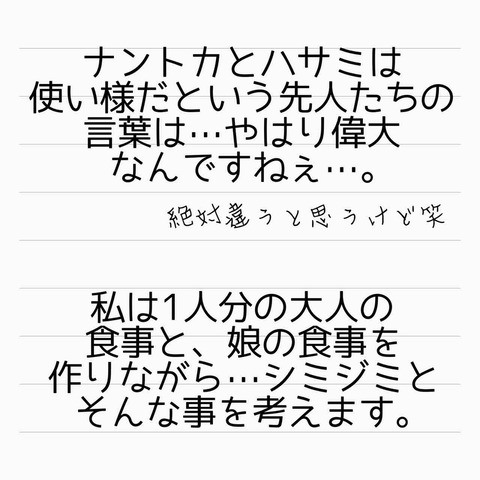 ナントカとハサミは
使い様だという先人たちの
言葉は…やはり偉大
なんですねぇ…。
絶対違うと思うけど笑
私は1人分の大人の
食事と、娘の食事を
作りながら…シミジミと
そんな事を考えます。